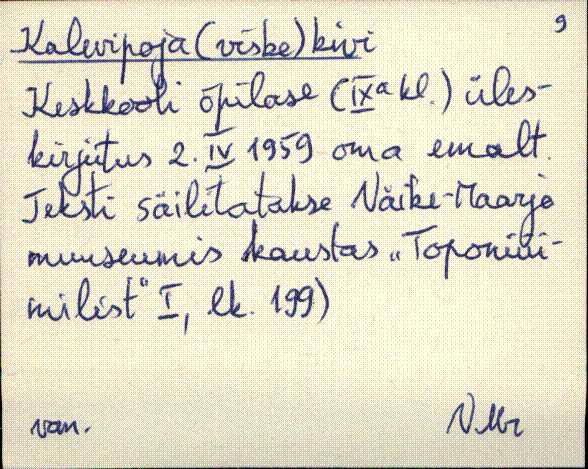 9
Kalevipoja (viske) kivi
Keskkooli õpilase (IXa kl.) üles-
kirjutus 2. IV 1959 oma emalt.
Teksti säilitatakse Väike-Maarja
muuseumis kaustas „Toponüü-
milist" I, lk. 199)
van. VMr